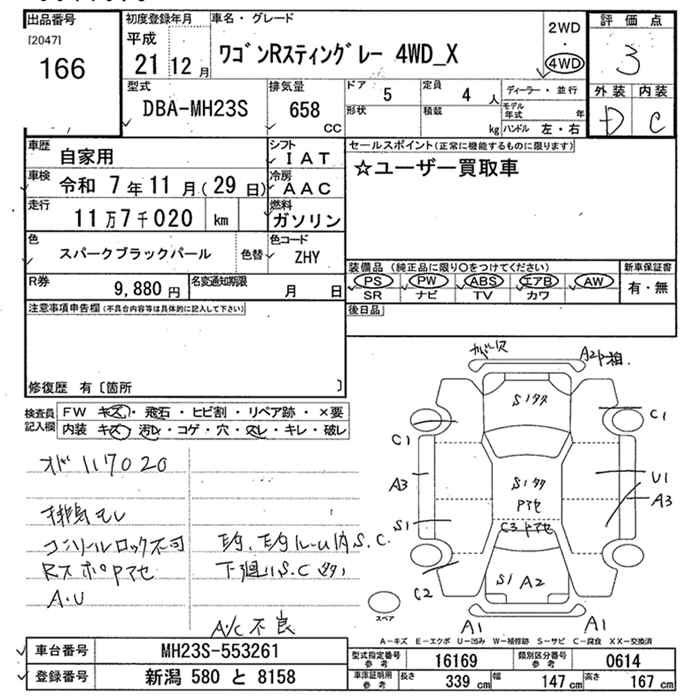 出品番号
[2047]
166
初度登録年月
平成
21 12 月
車名・グレード
ワゴンRスティングレー 4WD_X
2WD
・
4WD
評価点
3
外装 内装
D C
型式
DBA-MH23S
排気量
658
CC
ドア
5
定員
4 人
形状
積載
kg
ディーラー・並行
モデル年式 年
ハンドル 左・右
車歴
自家用
シフト
IAT
車検
令和 7年 11月 (29日)
冷房
AAC
走行
11万7千020 km
燃料
ガソリン
色
スパークブラックパール
色替
色コード
ZHY
R券
9,880 円
名変通知期限
月 日
セールスポイント(正常に機能するものに限ります)
☆ユーザー買取車
装備品 (純正品に限り○をつけてください)
新車保証書
PS PW ABS エアB AW
SR ナビ TV カワ
有・無
後日品
注意事項申告欄(不具合内容等は具体的に記入して下さい)
修復歴 有〔箇所 〕
検査員記入欄
FW キズ・飛石・ヒビ割・リペア跡・×要
内装 キズ・汚レ・コゲ・穴・スレ・キレ・破レ
オド117020
排気モレ
コンソールロック不可
RスポPアセ
A・U
下廻りS.C
A/C不良
A2
S1
C1
C1
A3
U1
A3
S1
Pアセ
C3
C2
S1 A2
A1
A1
スペア
A-キズ E-エクボ U-凹み W-補修跡 S-サビ C-腐食 XX-交換済
車台番号
MH23S-553261
登録番号
新潟 580 と 8158
型式指定番号
参考
16169
類別区分番号
参考
0614
車庫証明用
参考
長さ
339 cm
幅
147 cm
高さ
167 cm